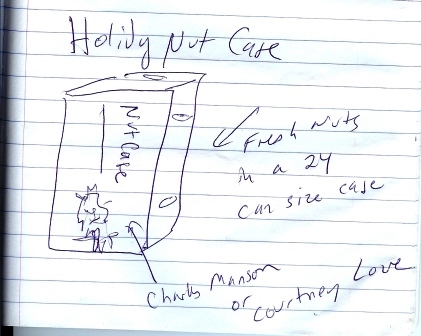 Holidy Nut Case
Nut Case
Fresh Nuts
in a 24
can size case
Charls Manson
or Courtney Love